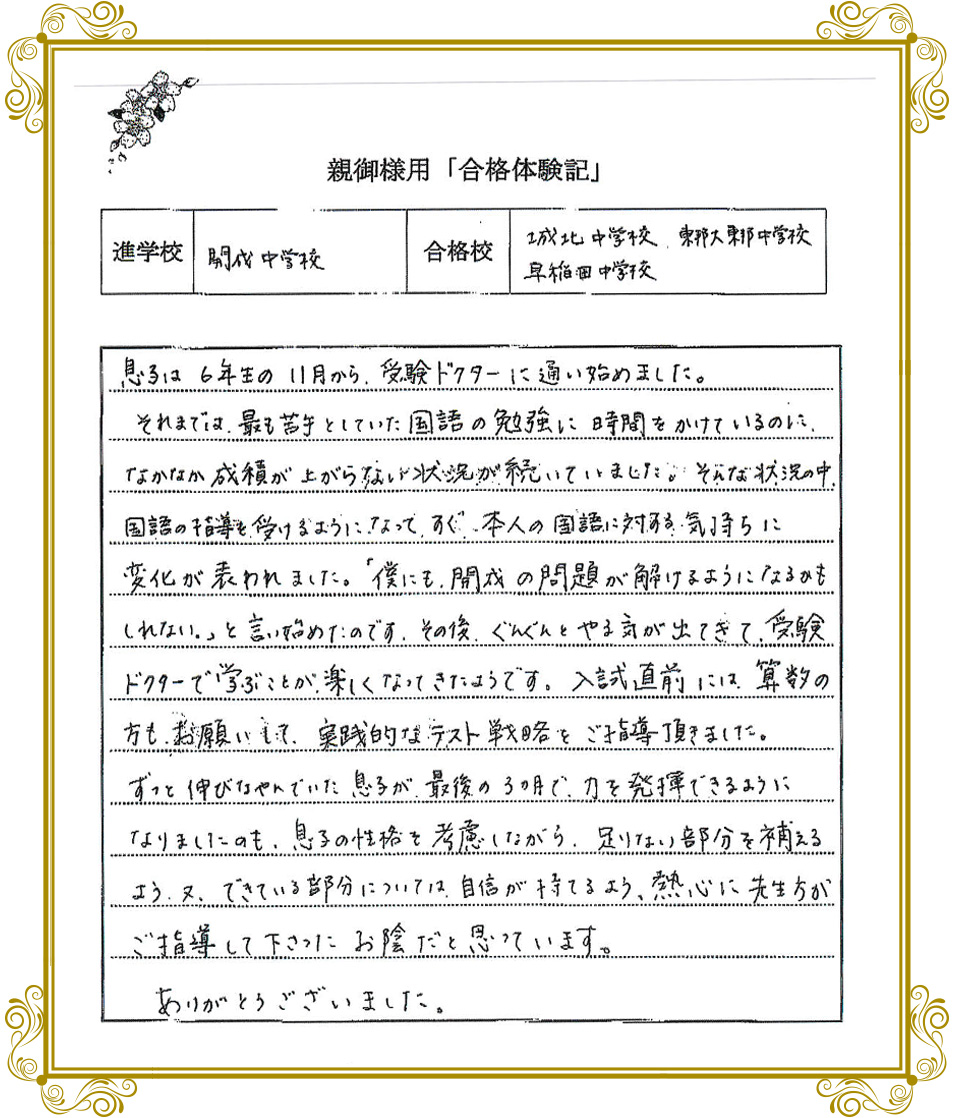 親御様用「合格体験記」
進学校 開成中学校 合格校 城北中学校、東邦大東邦中学校
早稲田中学校
息子は6年生の11月から、受験ドクターに通い始めました。
それまでは、最も苦手としていた国語の勉強に時間をかけているのに、
なかなか成績が上がらない状況が続いていました。そんな状況の中、
国語の指導を受けるようになって、すぐ、本人の国語に対する気持ちに
変化が表われました。「僕にも、開成の問題が解けるようになるかも
しれない。」と言い始めたのです。その後、ぐんぐんとやる気が出てきて、受験
ドクターで学ぶことが、楽しくなってきたようです。入試直前には、算数の
方も、お願いして、実践的なテスト戦略をご指導頂きました。
ずっと伸びなやんでいた息子が、最後の3ヵ月で、力を発揮できるように
なりましたのも、息子の性格を考慮しながら、足りない部分を補える
よう、又、できている部分については、自信が持てるよう、熱心に先生方が
ご指導して下さったお陰だと思っています。
ありがとうございました。